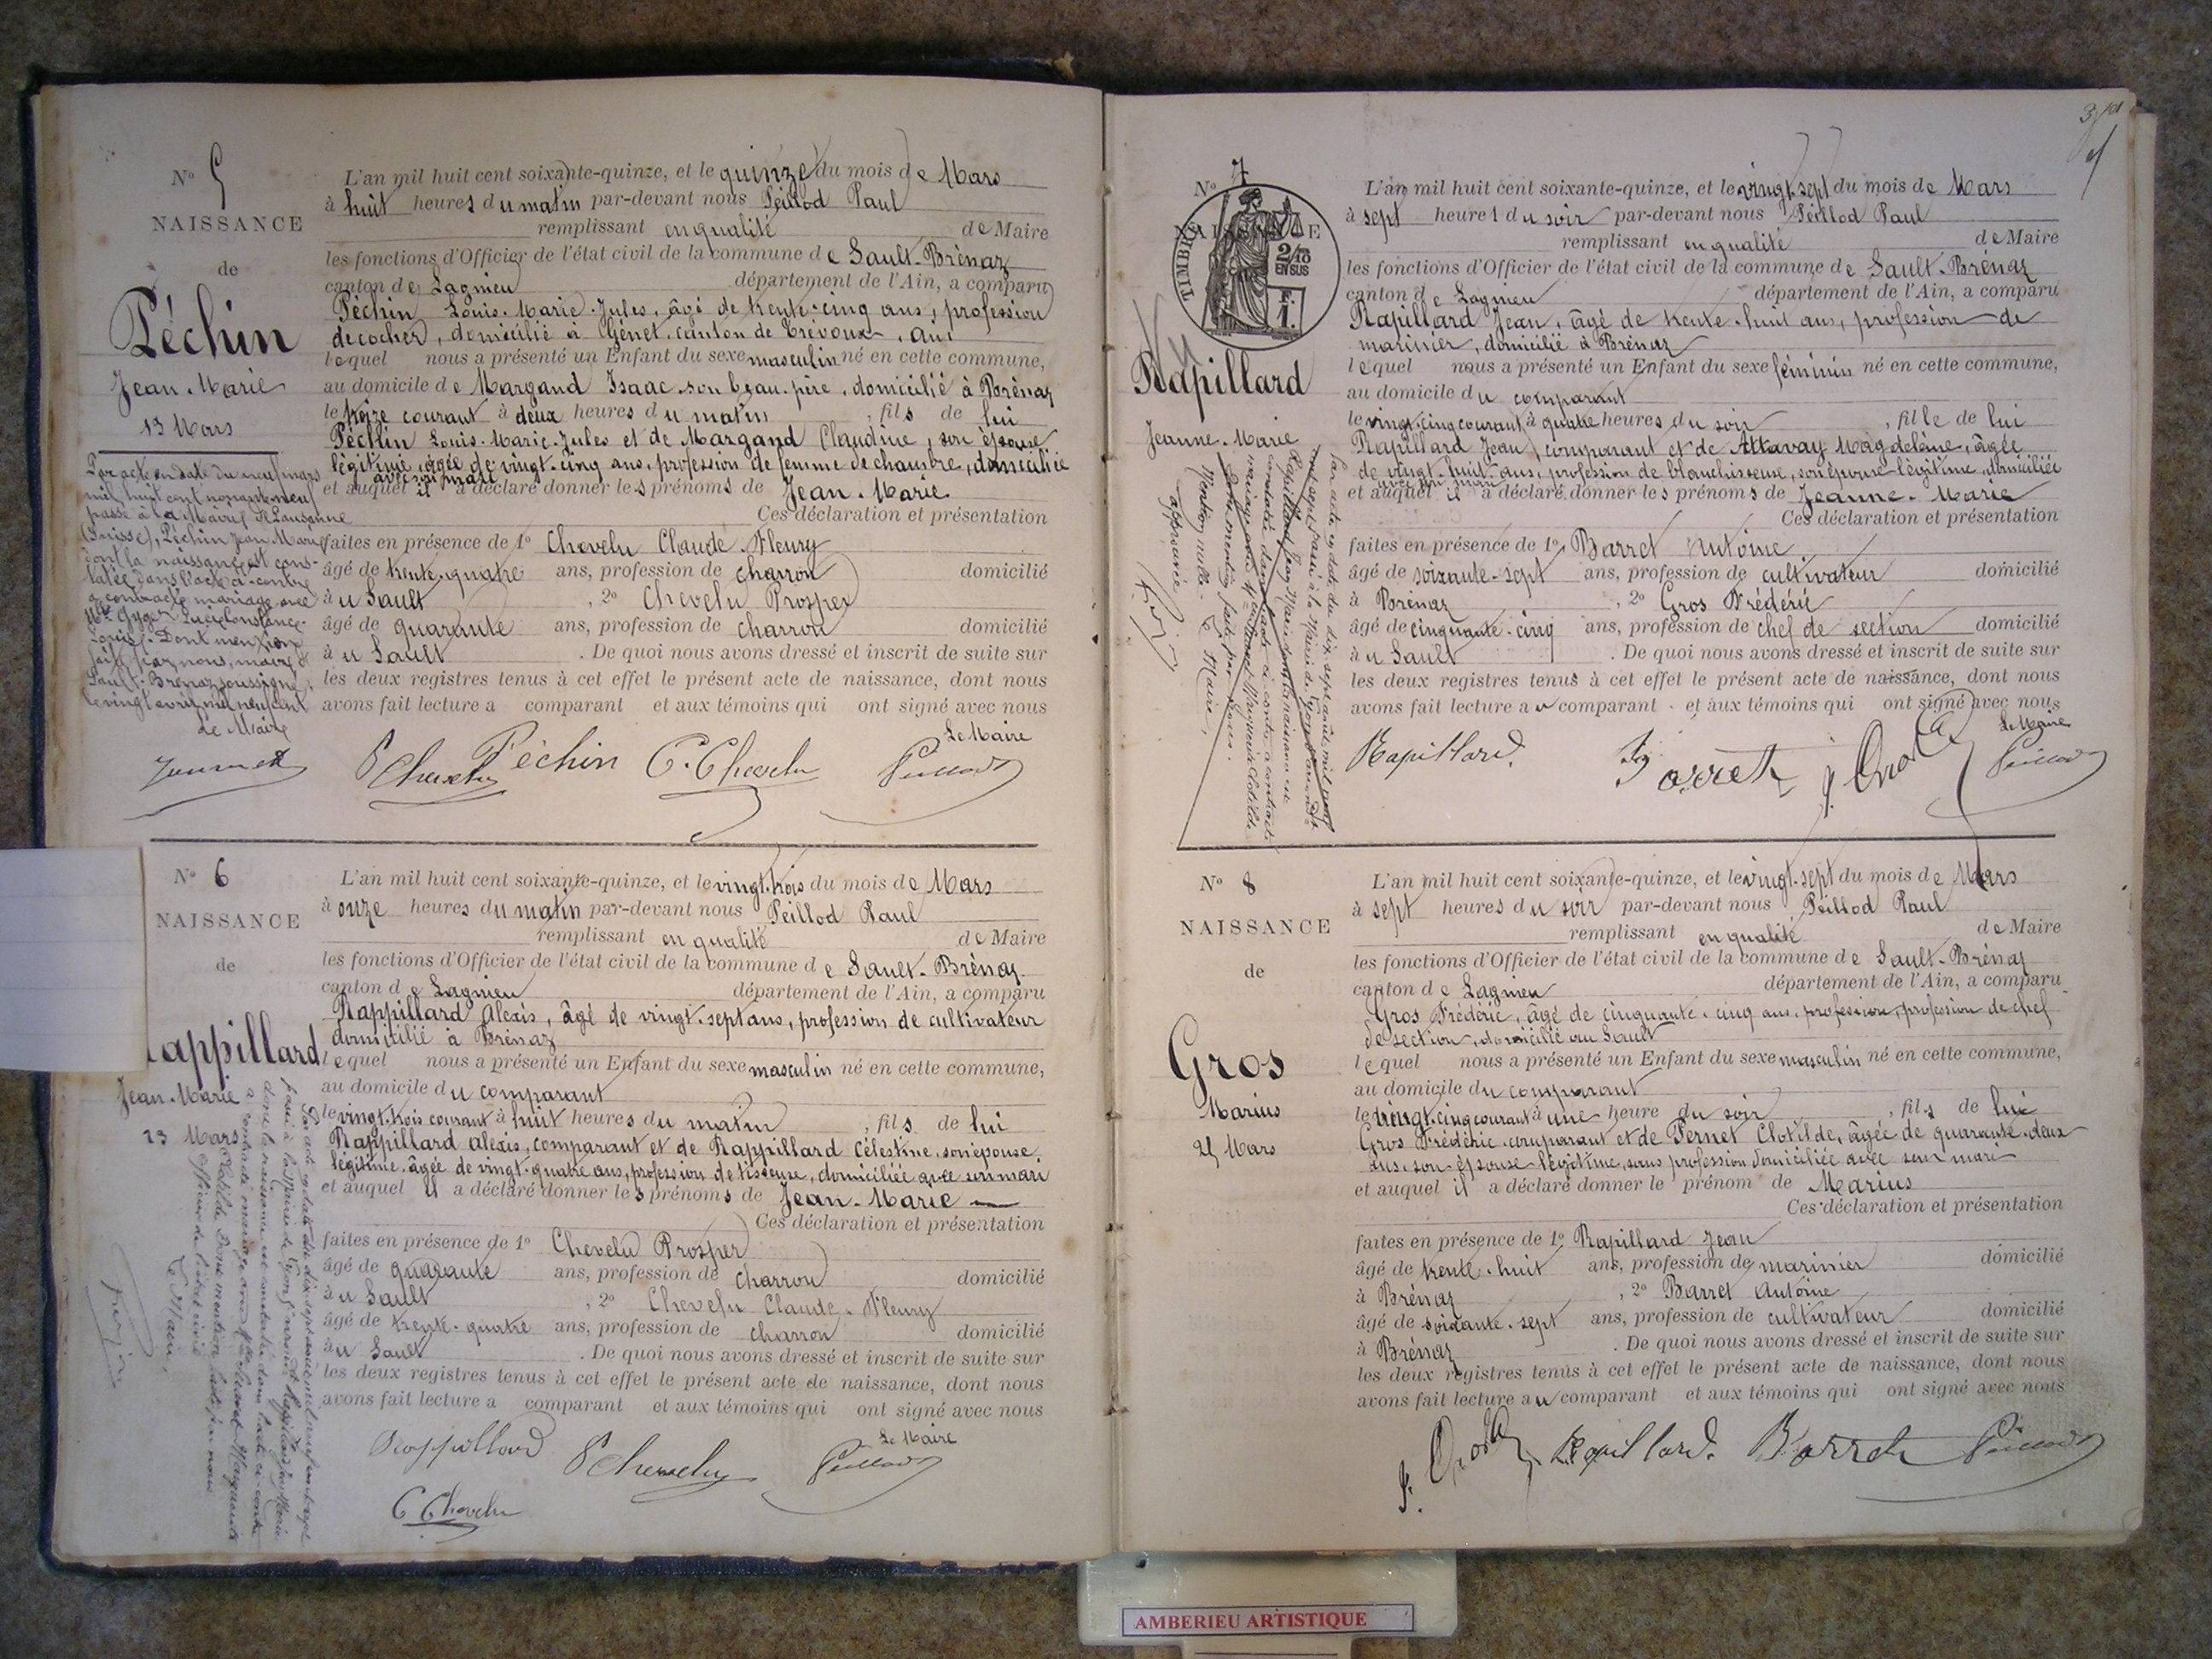 Nº 5
NAISSANCE
de
Péchin
Jean-Marie
13 Mars
Par acte en date du neuf mars
mil huit cent nonante-neuf
passé à la Mairie de Lausanne
(Suisse), Péchin Jean Marie
dont la naissance est cons-
tatée dans l'acte ci-contre
a contracté mariage avec
Mlle Gyger Lucie Constance
Louise. Dont mention
faite par nous, maire de
Sault-Brénaz soussigné,
le vingt avril mil neuf cent
Le Maire
L'an mil huit cent soixante-quinze, et le quinze du mois de Mars
à huit heures du matin par-devant nous Peillod Paul
remplissant en qualité de Maire
les fonctions d'Officier de l'état civil de la commune de Sault-Brénaz
canton de Lagnieu département de l'Ain, a comparu
Péchin Louis-Marie-Jules, âgé de trente-cinq ans, profession
de cocher, domicilié à Génet, canton de Trévoux, Ain
lequel nous a présenté un Enfant du sexe masculin né en cette commune,
au domicile de Margand Isaac son beau-père, domicilié à Brénaz
le treize courant à deux heures du matin, fils de lui
Péchin Louis-Marie-Jules et de Margand Claudine, son épouse
légitime, âgée de vingt-cinq ans, profession de femme de chambre, domiciliée
avec son mari
et auquel il a déclaré donner les prénoms de Jean-Marie
Ces déclaration et présentation
faites en présence de 1º Chevelu Claude-Fleury
âgé de trente-quatre ans, profession de charron domicilié
au Sault, 2º Chevelu Prosper
âgé de quarante ans, profession de charron domicilié
au Sault. De quoi nous avons dressé et inscrit de suite sur
les deux registres tenus à cet effet le présent acte de naissance, dont nous
avons fait lecture a comparant et aux témoins qui ont signé avec nous
Le Maire
P Chevelu Péchin C. Chevelu Peillod
Nº 6
NAISSANCE
de
appillard
Jean-Marie
23 Mars
L'an mil huit cent soixante-quinze, et le vingt-trois du mois de Mars
à onze heures du matin par-devant nous Peillod Paul
remplissant en qualité de Maire
les fonctions d'Officier de l'état civil de la commune de Sault-Brénaz
canton de Lagnieu département de l'Ain, a comparu
Rappillard Alexis, âgé de vingt-sept ans, profession de cultivateur
domicilié à Brénaz
lequel nous a présenté un Enfant du sexe masculin né en cette commune,
au domicile du comparant
le vingt-trois courant à huit heures du matin, fils de lui
Rappillard Alexis, comparant et de Rappillard Célestine, son épouse
légitime, âgée de vingt-quatre ans, profession de tisseuse, domiciliée avec son mari
et auquel il a déclaré donner les prénoms de Jean-Marie
Ces déclaration et présentation
faites en présence de 1º Chevelu Prosper
âgé de quarante ans, profession de charron domicilié
au Sault, 2º Chevelu Claude-Fleury
âgé de trente-quatre ans, profession de charron domicilié
au Sault. De quoi nous avons dressé et inscrit de suite sur
les deux registres tenus à cet effet le présent acte de naissance, dont nous
avons fait lecture a comparant et aux témoins qui ont signé avec nous
Le Maire
Rappillard P Chevelu Peillod
C Chevelu
Nº 7
NAISSANCE
TIMBRE
2/10
EN SUS
F.
1.
Rapillard
Jeanne-Marie
Mention nulle. Le Maire,
approuvée
L'an mil huit cent soixante-quinze, et le vingt-sept du mois de Mars
à sept heures du soir par-devant nous Peillod Paul
remplissant en qualité de Maire
les fonctions d'Officier de l'état civil de la commune de Sault-Brénaz
canton de Lagnieu département de l'Ain, a comparu
Rapillard Jean, âgé de trente-huit ans, profession de
marinier, domicilié à Brénaz
lequel nous a présenté un Enfant du sexe féminin né en cette commune,
au domicile du comparant
le vingt-cinq courant à quatre heures du soir, fille de lui
Rapillard Jean, comparant et de Attavay Magdeleine, âgée
de vingt-huit ans, profession de blanchisseuse, son épouse légitime, domiciliée
avec son mari
et auquel il a déclaré donner les prénoms de Jeanne-Marie
Ces déclaration et présentation
faites en présence de 1º Barret Antoine
âgé de soixante-sept ans, profession de cultivateur domicilié
à Brénaz, 2º Gros Frédéric
âgé de cinquante-cinq ans, profession de chef de section domicilié
au Sault. De quoi nous avons dressé et inscrit de suite sur
les deux registres tenus à cet effet le présent acte de naissance, dont nous
avons fait lecture au comparant et aux témoins qui ont signé avec nous
Le Maire
Rapillard Barret f. Gros Peillod
Nº 8
NAISSANCE
de
Gros
Marius
25 Mars
L'an mil huit cent soixante-quinze, et le vingt-sept du mois de Mars
à sept heures du soir par-devant nous Peillod Paul
remplissant en qualité de Maire
les fonctions d'Officier de l'état civil de la commune de Sault-Brénaz
canton de Lagnieu département de l'Ain, a comparu
Gros Frédéric, âgé de cinquante-cinq ans, profession, profession de chef
de section, domicilié au Sault
lequel nous a présenté un Enfant du sexe masculin né en cette commune,
au domicile du comparant
le vingt-cinq courant à une heure du soir, fils de lui
Gros Frédéric comparant et de Pernet Clotilde, âgée de quarante-deux
ans, son épouse légitime, sans profession domiciliée avec son mari
et auquel il a déclaré donner le prénom de Marius
Ces déclaration et présentation
faites en présence de 1º Rapillard Jean
âgé de trente-huit ans, profession de marinier domicilié
à Brénaz, 2º Barret Antoine
âgé de soixante-sept ans, profession de cultivateur domicilié
à Brénaz. De quoi nous avons dressé et inscrit de suite sur
les deux registres tenus à cet effet le présent acte de naissance, dont nous
avons fait lecture au comparant et aux témoins qui ont signé avec nous
f. Gros Rapillard. Barret Peillod
AMBERIEU ARTISTIQUE